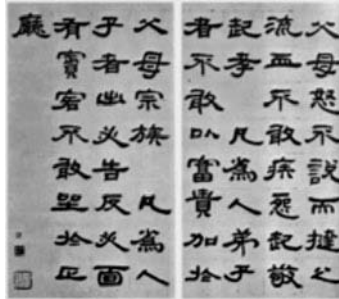 父母怒不說而撻之
流血不敢疾怨起敬
起孝 凡為人弟子
者不敢以富貴加於
父母宗族 凡為人
子者出必告反必面
有賓客不敢坐於正
廳